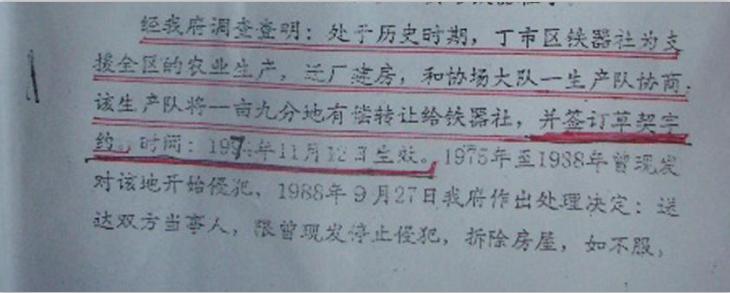 经我府调查查明：处于历史时期，丁市区铁器社为支
援全区的农业生产，迁厂建房，和协场大队一生产队协商，
该生产队将一亩九分地有偿转让给铁器社，并签订草契字
约。时间：197 年11月12日生效。1975年至1988年曾现发
对该地开始侵犯，1988年9月27日我府作出处理决定：送
达双方当事人，限曾现发停止侵犯，拆除房屋，如不服，